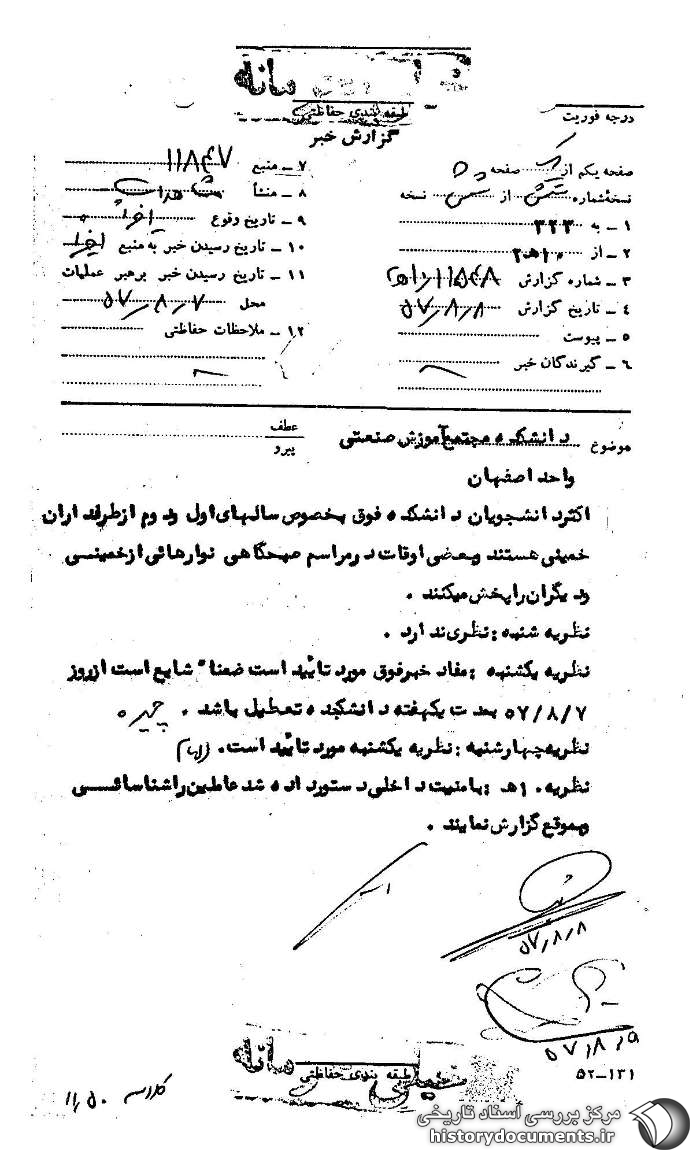 مانه
طبقه بندی حفاظتی
گزارش خبر
درجه فوریت
صفحه یکم از یک صفحه
نسخهٔ شماره شش از شش نسخه
۱ ـ به ۳۲۳
۲ ـ از ۱۰ هـ ۲
۳ ـ شماره گزارش
۴ ـ تاریخ گزارش ۵۷/۸/۸
۵ ـ پیوست
۶ ـ گیرندگان خبر
۷ ـ منبع ۱۱۸۴۷
۸ ـ منشأ مشاهدات
۹ ـ تاریخ وقوع اخیرا
۱۰ ـ تاریخ رسیدن خبر به منبع اخیرا
۱۱ ـ تاریخ رسیدن خبر برهبر عملیات
محل ۵۷/۸/۷
۱۲ ـ ملاحظات حفاظتی
موضوع دانشکده مجتمع آموزش صنعتی
عطف
پیرو
واحد اصفهان
اکثر دانشجویان دانشکده فوق بخصوص سالهای اول ودوم ازطرفداران
خمینی هستند وبعضی اوقات درمراسم صبحگاهی نوارهائی ازخمینی
ودیگران راپخش میکنند .
نظریه شنبه : نظری ندارد .
نظریه یکشنبه : مفاد خبرفوق مورد تائید است ضمنا" شایع است ازروز
۵۷/۸/۷ بمدت یکهفته دانشکده تعطیل باشد .
نظریه چهارشنبه : نظریه یکشنبه مورد تائید است.
نظریه ۱۰هـ : بامنیت داخلی دستور داده شد عاملین راشناسائی
وبموقع گزارش نمایند .
۵۷/۸/۸
۵۷/۸/۹
مانه
طبقه بندی حفاظتی
۵۲-۱۳۱
کلاسه ۱۱.۵۰
مرکز بررسی اسناد تاریخی
historydocuments.ir